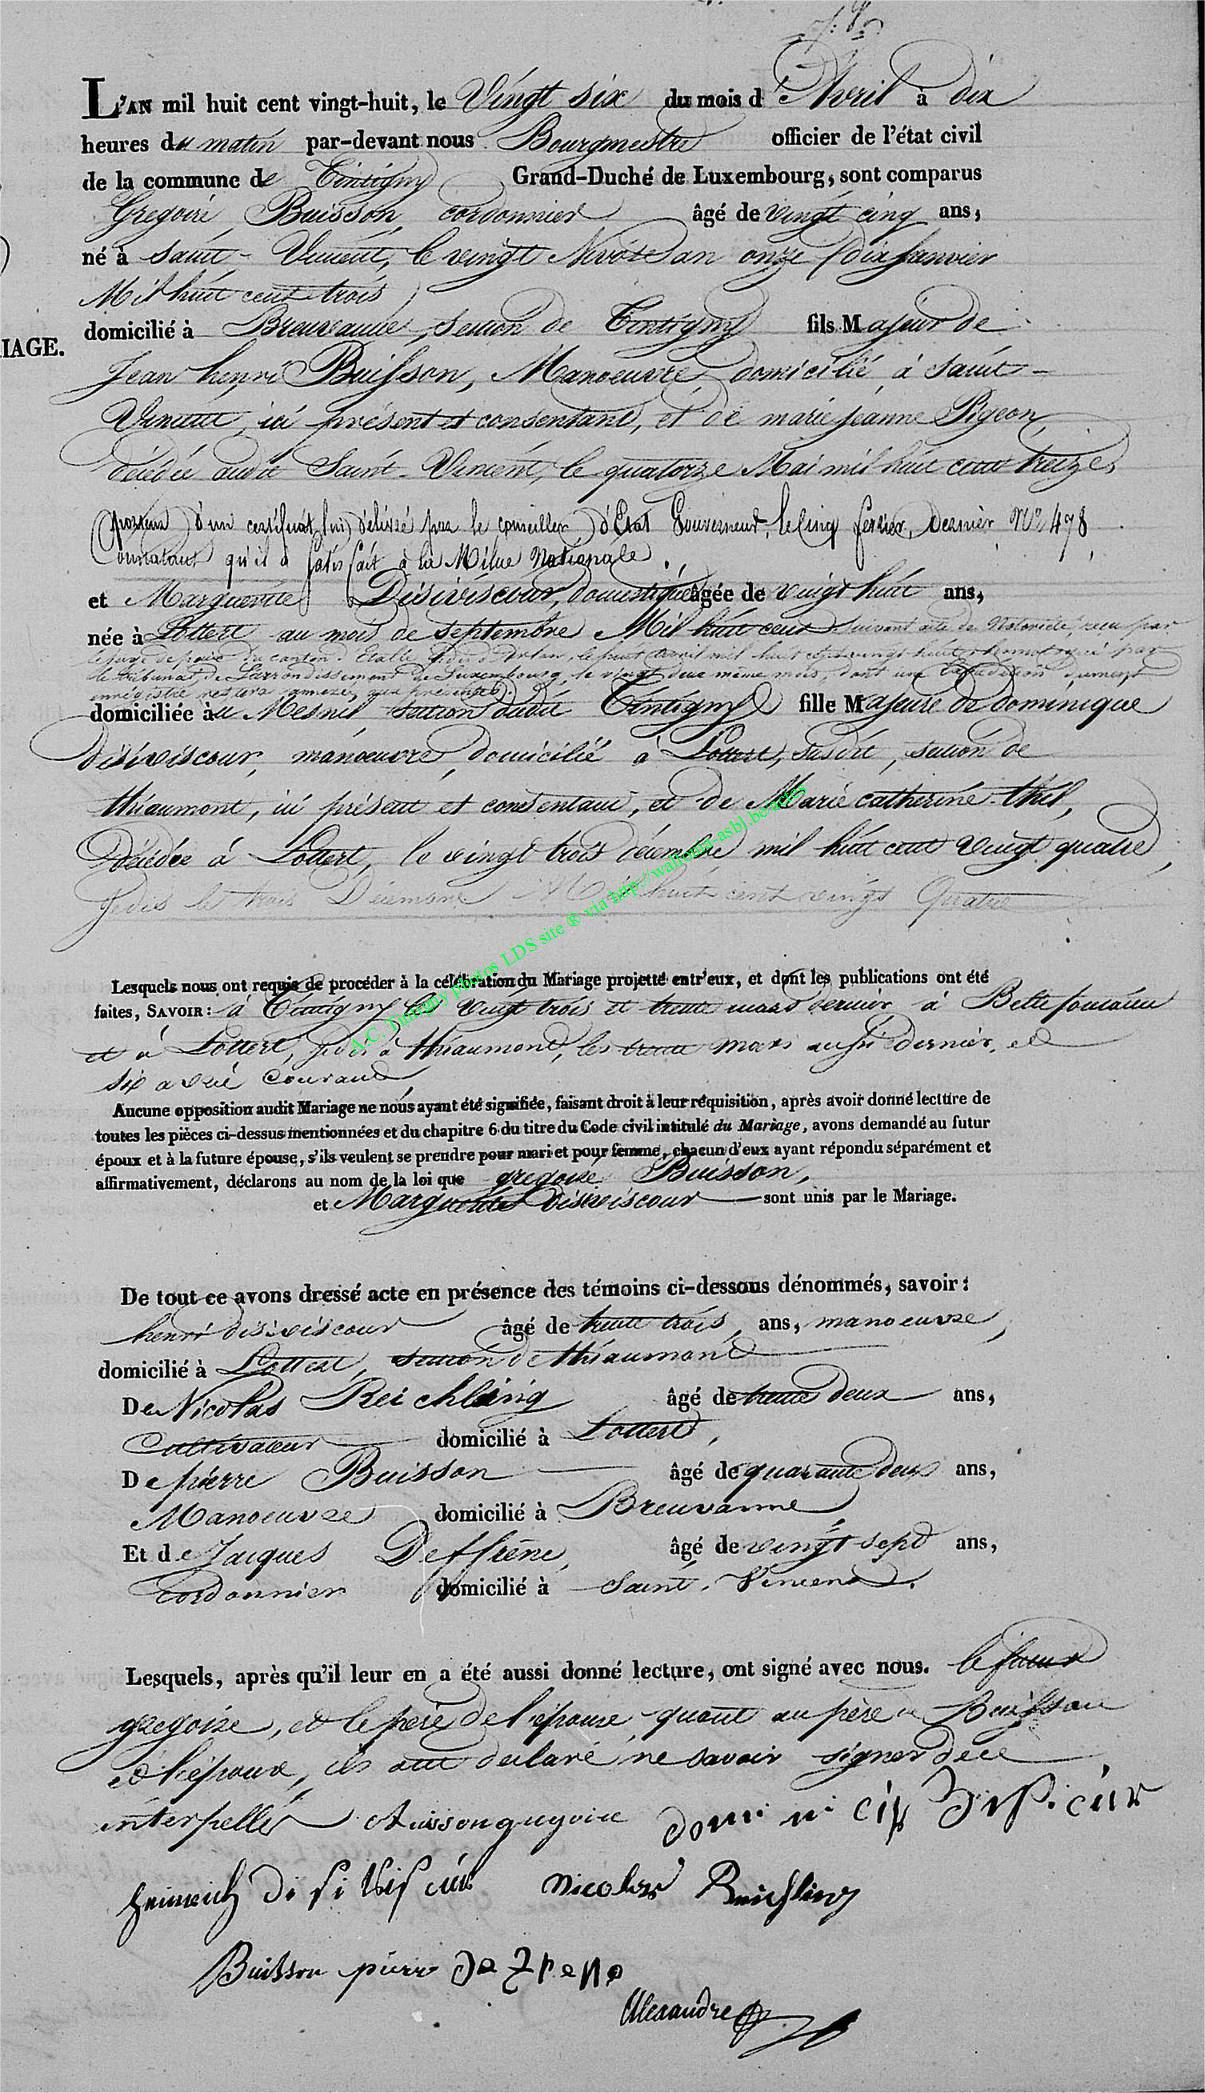 L'AN mil huit cent vingt-huit, le Vingt six du mois d'Avril à dix
heures du matin par-devant nous Bourgmestre officier de l'état civil
de la commune de Tintigny Grand-Duché de Luxembourg, sont comparus
Gregoire Buisson, cordonnier âgé de vingt cinq ans,
né à saint-Vincent, le vingt Nivôse an onze (dix Janvier
Mil huit cent trois)
domicilié à Breuvanne, section de Tintigny fils Majeur de
IAGE.
Jean henri Buisson, Manoeuvre, domicilié à saint-
Vincent, ici présent et consentant, et de marie jeanne Pigeon,
décédée audit Saint-Vincent, le quatorze Mai mil huit cent treize,
(porteur d'un certificat lui délivré par le conseiller d'Etat Gouverneur, le cinq fevrier dernier N° 478,
Constatant qu'il a satisfait à la Milice Nationale.
et Marguerite Désiviscour, domestique âgée de vingt huit ans,
née à Lottert au mois de septembre Mil huit cent suivant acte de Notoriété, reçu par
le juge de paix du canton d'Etalle
le tribunal de l'arrondissement de Luxembourg, le vingt deux même mois, dont une Expédition dument
enregistré restera annexée aux présentes.
domiciliée au Mesnil section dudit Tintigny fille Majeure de dominique
désiviscour, manoeuvre, domicilié à Lottert, susdit, section de
thiaumont, ici présent et consentant, et de Marie catherine thil,
Décédée à Lottert, le vingt trois décembre mil huit cent vingt quatre,
trois Décembre Mil huit cent vingt Quatre
A-C. Tintigny photos LDS site ® via http://wallonia-asbl.be/actes
Lesquels nous ont requis de procéder à la célébration du Mariage projetté entr'eux, et dont les publications ont été
faites, SAVOIR : à Tintigny les vingt trois et trente mars dernier, à Bellefontaine
et à Lottert, à thiaumont, les trente mars aussi dernier, et
six avril courant
Aucune opposition audit Mariage ne nous ayant été signifiée, faisant droit à leur réquisition, après avoir donné lecture de
toutes les pièces ci-dessus mentionnées et du chapitre 6 du titre du Code civil intitulé du Mariage, avons demandé au futur
époux et à la future épouse, s'ils veulent se prendre pour mari et pour femme, chacun d'eux ayant répondu séparément et
affirmativement, déclarons au nom de la loi que gregoire Buisson,
et Marguerite Désiviscour sont unis par le Mariage.
De tout ce avons dressé acte en présence des témoins ci-dessous dénommés, savoir :
henri désiviscour âgé de trente trois ans, manoeuvre,
domicilié à Lottert, section de thiaumont
De Nicolas Reichling âgé de trente deux ans,
Cultivateur domicilié à Lottert,
De pierre Buisson âgé de quarante deux ans,
Manoeuvre domicilié à Breuvanne
Et de Jacques Deffrène, âgé de vingt sept ans,
Cordonnier domicilié à Saint-Vincent.
Lesquels, après qu'il leur en a été aussi donné lecture, ont signé avec nous. le futur
gregoire, et le père de l'épouse, quant au père Buisson
et l'épouse, ils ont déclaré ne savoir signer de ce
interpellés Buisson gregoire
Heinrich
Nicolas Reichling
Buisson pierre
Alexandre